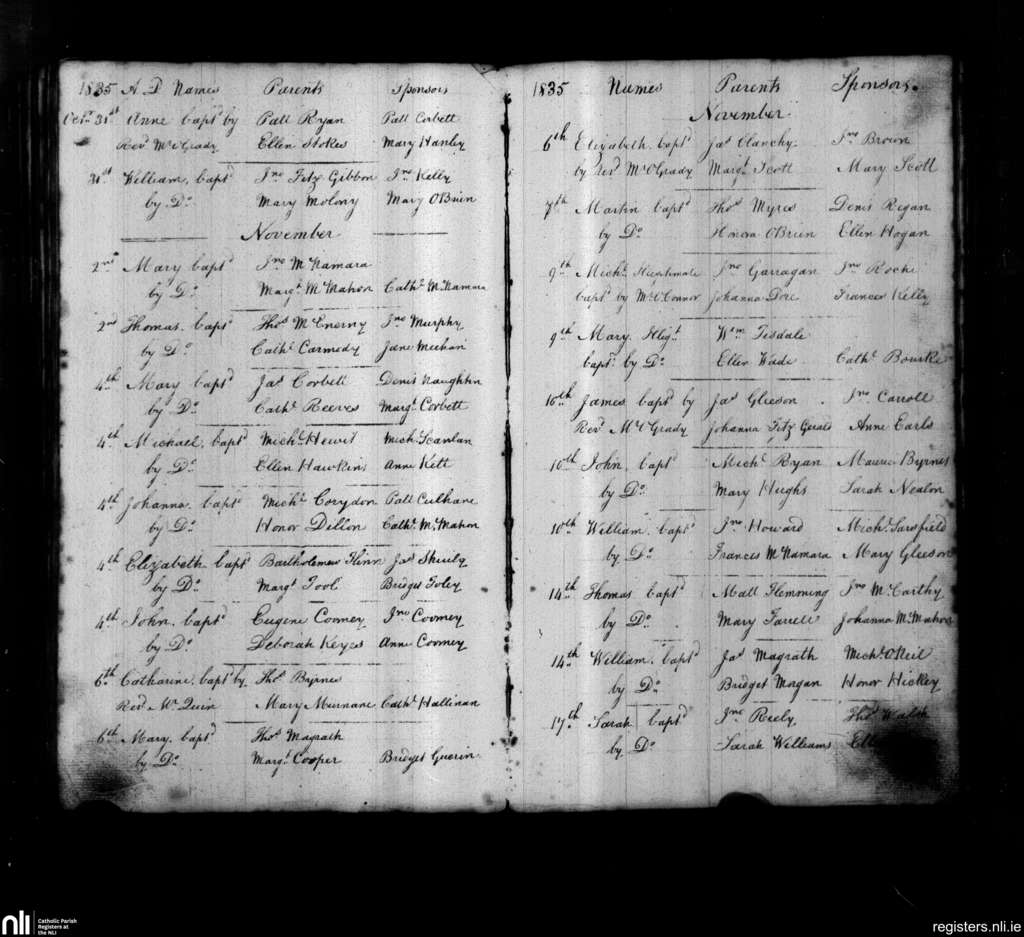 1835 A D Names Parents Sponsors
Octr 31st Anne bapt'd by Patt Ryan Patt Corbett
Revd Mr O'Grady Ellen Stokes Mary Hanley
31st William, bapt'd Jno Fitz Gibbon Jno Kelly
by Do Mary Molony Mary O'Brien
November
2nd Mary bapt'd Jno McNamara
by Do Margt McMahon Cathe McNamara
2nd Thomas, bapt'd Thos McEnerny Jno Murphy
by Do Cathe Carmody Jane Meehan
4th Mary bapt'd Jas Corbett Denis Naughtin
by Do Cathe Reeves Margt Corbett
4th Michael, bapt'd Michl Hewit Michl Scanlan
by Do Ellen Hawkins Anne Kett
4th Johanna, bapt'd Michl Corydon Patt Culhane
by Do Honor Dillon Cathe McMahon
4th Elizabeth bapt'd Bartholemew Flinn Jas Sheedy
by Do Margt Tool Bridget Foley
4th John, bapt'd Eugene Coomey Jno Coomey
by Do Deborah Keyes Anne Coomey
6th Catharine, bapt'd by Thos Byrnes
Revd Mr Quin Mary Murnane Cathe Hallinan
6th Mary, bapt'd Thos Magrath
by Do Margt Cooper Bridget Guerin
1835 Names Parents Sponsors
November
6th Elizabeth, bapt'd Jas Clanchy Jno Brown
by Revd Mr O'Grady Margt Scott Mary Scott
7th Martin bapt'd Thos Myres Denis Regan
by Do Honora O'Brien Ellen Hogan
9th Michl Illegitimate Jno Garragan Jno Roche
bapt'd by Mr O'Connor Johanna Dore Frances Kelly
9th Mary Illigt Wm Tisdale
bapt'd by Do Ellen Wade Cathe Bourke
10th James bapt'd by Jas Gleeson Jno Carroll
Revd Mr O'Grady Johanna Fitz Gerald Anne Earls
10th John, bapt'd Michl Ryan Maurice Byrnes
by Do Mary Hughs Sarah Nealon
10th William, bapt'd Jno Howard Michl Sarsfield
by Do Frances McNamara Mary Gleeson
14th Thomas bapt'd Matt Flemming Jno McCarthy
by Do Mary Farrell Johanna McMahon
14th William, bapt'd Jas Magrath Michl O'Neil
by Do Bridget Morgan Honor Hickey
17th Sarah bapt'd Jno Reely Thos Walsh
by Do Sarah Williams
nli Catholic Parish
Registers at
the NLI
registers.nli.ie